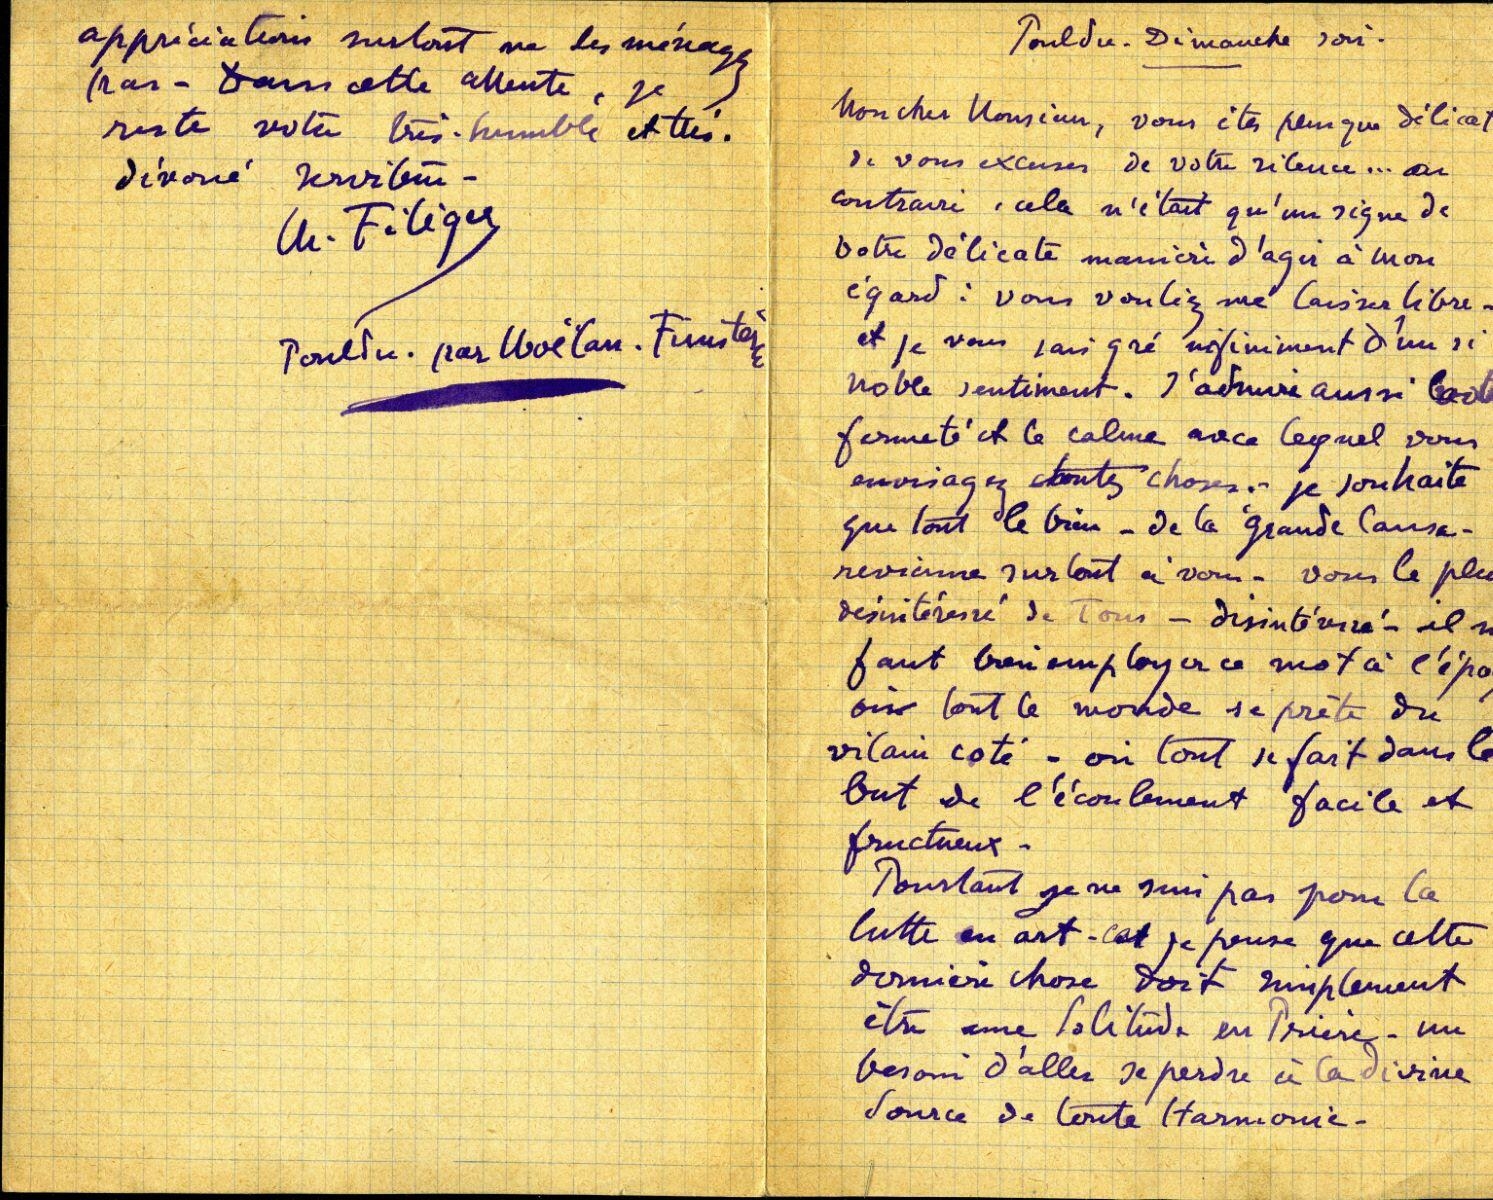 appréciations surtout ne les ménagez
pas - Dans cette attente, je
reste votre très-humble et très.
dévoué serviteur -
Ch. Filiger
Pouldu. par Moëlan. Finistère
Pouldu. Dimanche soir.
Mon cher Monsieur, vous êtes presque délicat
de vous excuser de votre silence... au
contraire, cela n'était qu'un signe de
votre délicate manière d'agir à mon
égard : vous vouliez me laisser libre -
et je vous sais gré infiniment d'un si
noble sentiment. J'admire aussi la
fermeté et le calme avec lequel vous
envisagez toutes choses. - je souhaite
que tout le bien - de la grande Cause -
revienne surtout à vous - vous le plus
désintéressé de Tous - désintéressé - il
faut bien employer ce mot à
où tout le monde se prête du
vilain coté - où tout se fait dans le
but de l'écoulement facile et
fructueux -
Pourtant je ne suis pas pour la
lutte en art - car je pense que cette
dernière chose doit simplement
être une Solitude en Prière - un
besoin d'aller se perdre à la divine
Source de toute Harmonie -